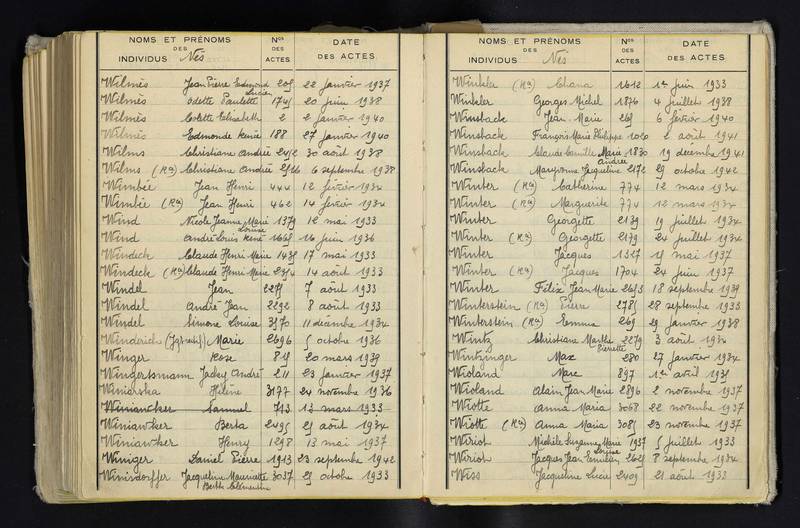 NOMS ET PRÉNOMS
DES
INDIVIDUS Nés
Nos
DES
ACTES
DATE
DES ACTES
Wilmès Jean Pierre Edmond Lucien 22 janvier 1937
Wilmès Odette Paulette 20 juin 1938
Wilmès Colette Elisabeth 2 2 janvier 1940
Wilmès Edmonde René 188 27 janvier 1940
Wilms Christiane Andrée 30 août 1938
Wilms (Ra) Christiane Andrée 6 septembre 1938
Wimbée Jean Henri 444 12 février 1934
Wimbée (Ra) Jean Henri 462 14 février 1934
Wind Nicole Jeanne Marie Louise 1379 12 mai 1933
Wind André Louis René 16 juin 1936
Windeck Claude Henri Marie 17 mai 1933
Windeck (Ra) Claude Henri Marie 14 août 1933
Windel Jean 7 août 1933
Windel André Jean 2292 8 août 1933
Windel Simone Louise 3570 11 décembre 1934
Winderich Marie 2696 5 octobre 1936
Winger Rose 20 mars 1939
Wingertsmann Jacky André 211 23 janvier 1937
Winiarska Hélène 3177 24 novembre 1936
Winiawker Samuel 713 13 mars 1933
Winiawker Berta 2495 21 août 1934
Winiawker Henry 1298 13 mai 1937
Winiger Daniel Pierre 1913 23 septembre 1942
Winisdorffer Jacqueline Mauricette Berthe Clémentine 3037 25 octobre 1933
NOMS ET PRÉNOMS
DES
INDIVIDUS Nés
Nos
DES
ACTES
DATE
DES ACTES
Winkler (Ra) Chana 1612 1er juin 1933
Winkler Georges Michel 1876 4 juillet 1938
Winsback Jean Marie 6 février 1940
Winsback François Marie Philippe 1060 2 août 1941
Winsback Claude Camille Marie Andrée 1830 19 décembre 1941
Winsback Jacqueline 2172 29 octobre 1942
Winter (Ra) Catherine 774 12 mars 1934
Winter (Ra) Marguerite 774 12 mars 1934
Winter Georgette 2139 19 juillet 1934
Winter (Ra) Georgette 2179 24 juillet 1934
Winter Jacques 1327 15 mai 1937
Winter (Ra) Jacques 1704 24 juin 1937
Winter Félix Jean Marie 18 septembre 1939
Winterstein (Ra) Pierre 2785 28 septembre 1933
Winterstein (Ra) Emma 269 29 janvier 1938
Wintz Christiane Marthe Pierrette 2279 3 août 1934
Wintzinger Max 280 27 janvier 1934
Wioland Marc 897 1er avril 1935
Wioland Alain Jean Marie 2896 2 novembre 1937
Wiotte Anna Maria 3068 22 novembre 1937
Wiotte (Ra) Anna Maria 3085 23 novembre 1937
Wiriot Michèle Suzanne Marie Louise 1937 5 juillet 1933
Wiriot Jacques Jean Emilien 8 septembre 1934
Wiss Jacqueline Lucie 2409 21 août 1933